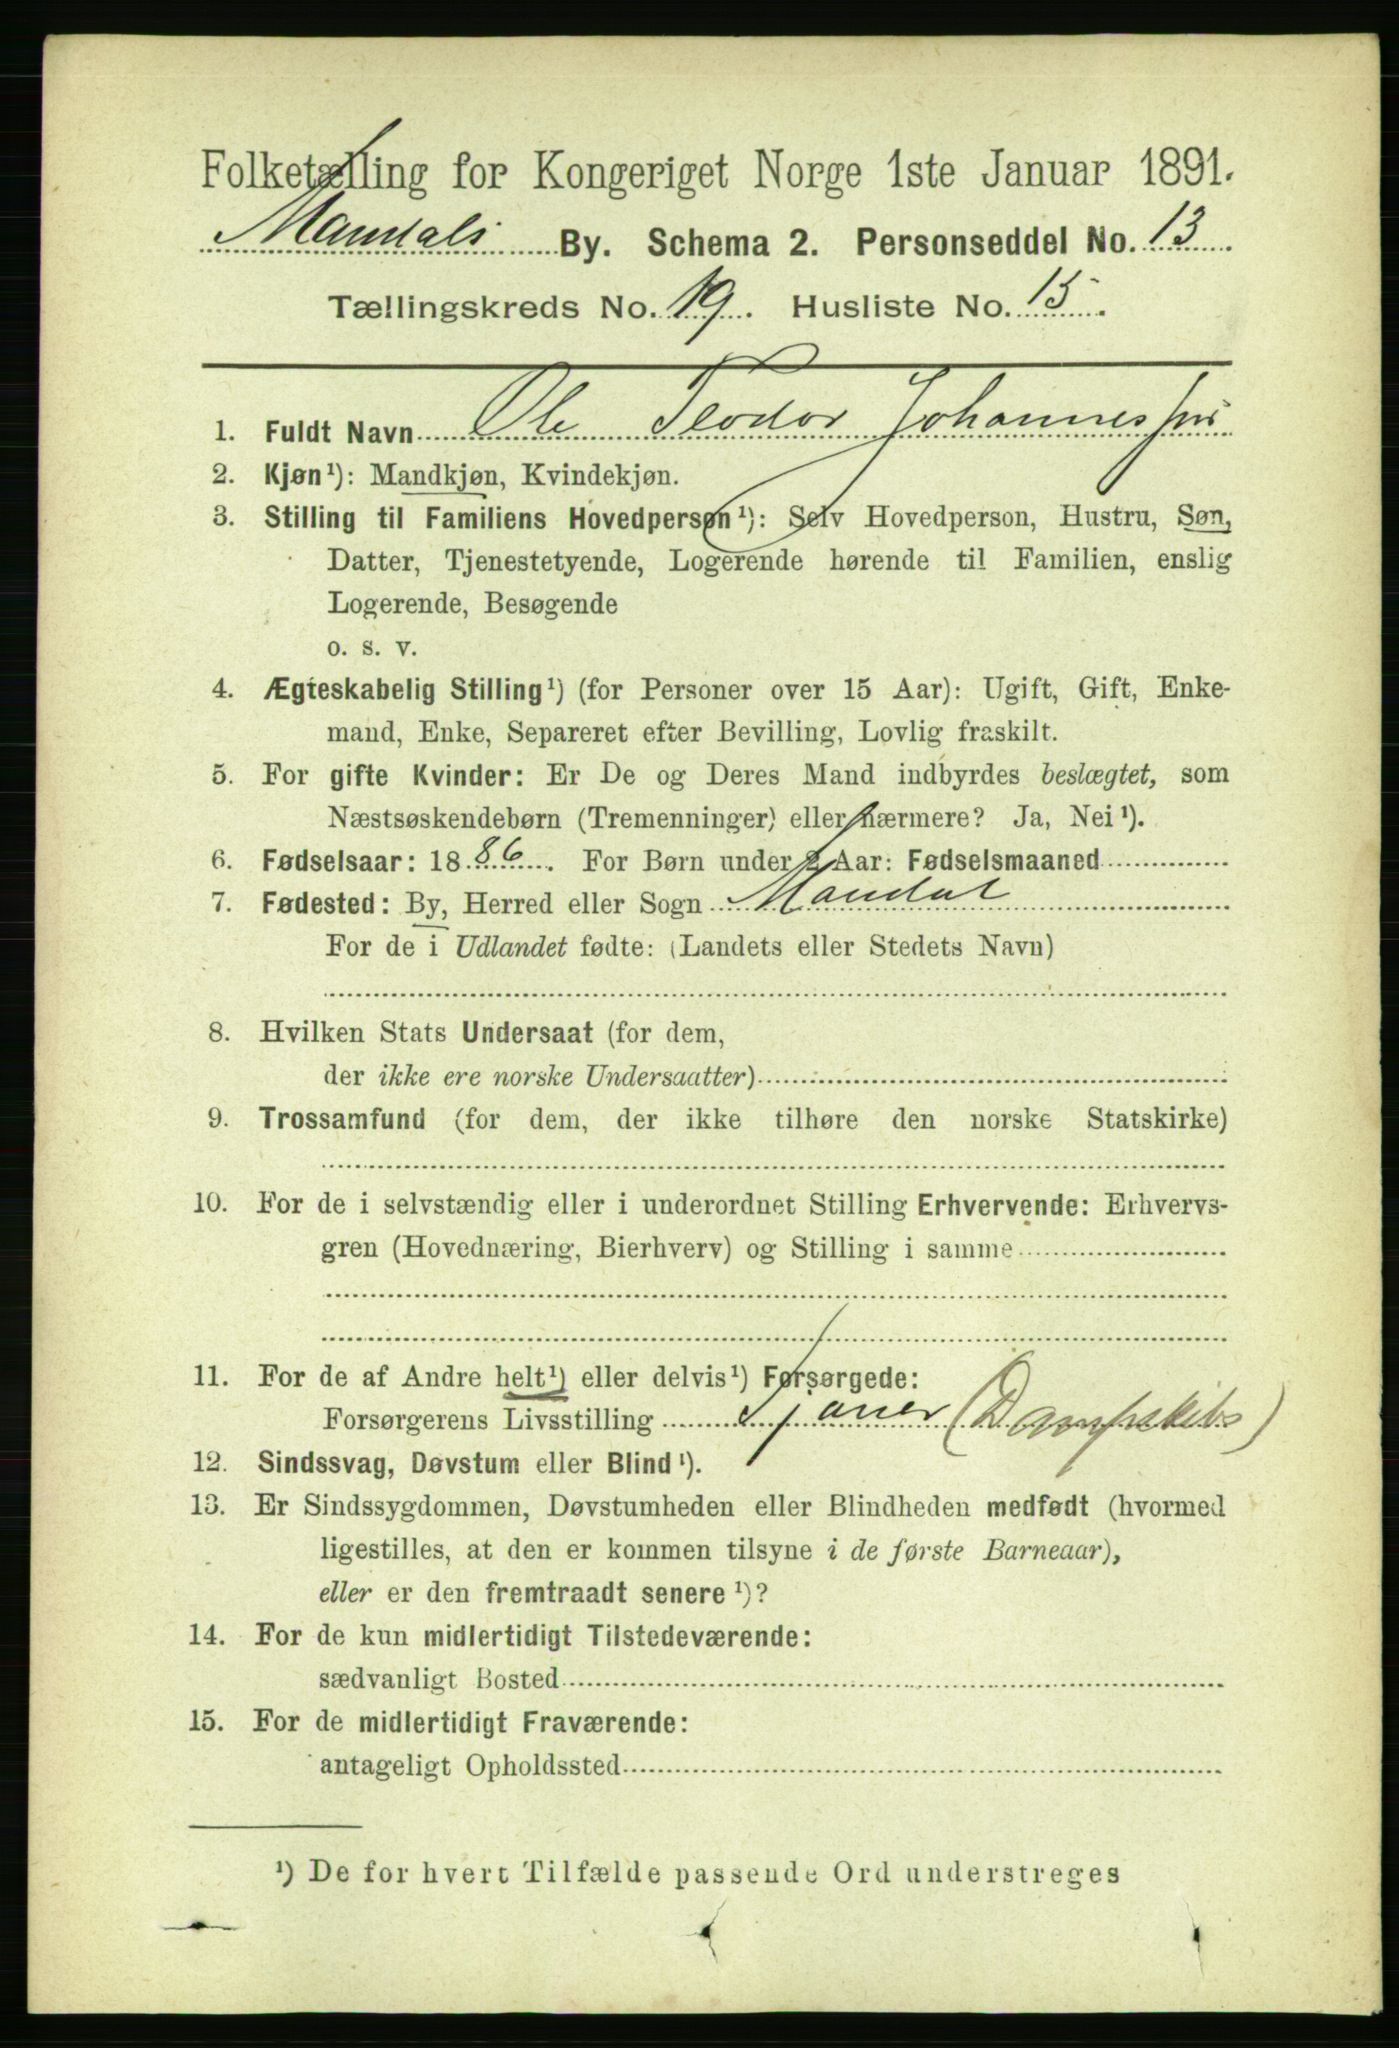 Folketælling for Kongeriget Norge 1ste Januar 1891.
Mandals By. Schema 2. Personseddel No. 13
Tællingskreds No. 19. Husliste No. 15.
1. Fuldt Navn Ole Teodor Johannessen
2. Kjøn¹): Mandkjøn, Kvindekjøn.
3. Stilling til Familiens Hovedperson¹): Selv Hovedperson, Hustru, Søn,
Datter, Tjenestetyende, Logerende hørende til Familien, enslig
Logerende, Besøgende
o. s. v.
4. Ægteskabelig Stilling¹) (for Personer over 15 Aar): Ugift, Gift, Enke-
mand, Enke, Separeret efter Bevilling, Lovlig fraskilt.
5. For gifte Kvinder: Er De og Deres Mand indbyrdes beslægtet, som
Næstsøskendebørn (Tremenninger) eller nærmere? Ja, Nei¹).
6. Fødselsaar: 1886. For Børn under 2 Aar: Fødselsmaaned
7. Fødested: By, Herred eller Sogn Mandal
For de i Udlandet fødte: (Landets eller Stedets Navn)
8. Hvilken Stats Undersaat (for dem,
der ikke ere norske Undersaatter)
9. Trossamfund (for dem, der ikke tilhøre den norske Statskirke)
10. For de i selvstændig eller i underordnet Stilling Erhvervende: Erhvervs-
gren (Hovednæring, Bierhverv) og Stilling i samme
11. For de af Andre helt¹) eller delvis¹) Forsørgede:
Forsørgerens Livsstilling Sjöner (Dampskibs)
12. Sindssvag, Døvstum eller Blind¹).
13. Er Sindssygdommen, Døvstumheden eller Blindheden medfødt (hvormed
ligestilles, at den er kommen tilsyne i de første Barneaar),
eller er den fremtraadt senere¹)?
14. For de kun midlertidigt Tilstedeværende:
sædvanligt Bosted
15. For de midlertidigt Fraværende:
antageligt Opholdssted
¹) De for hvert Tilfælde passende Ord understreges